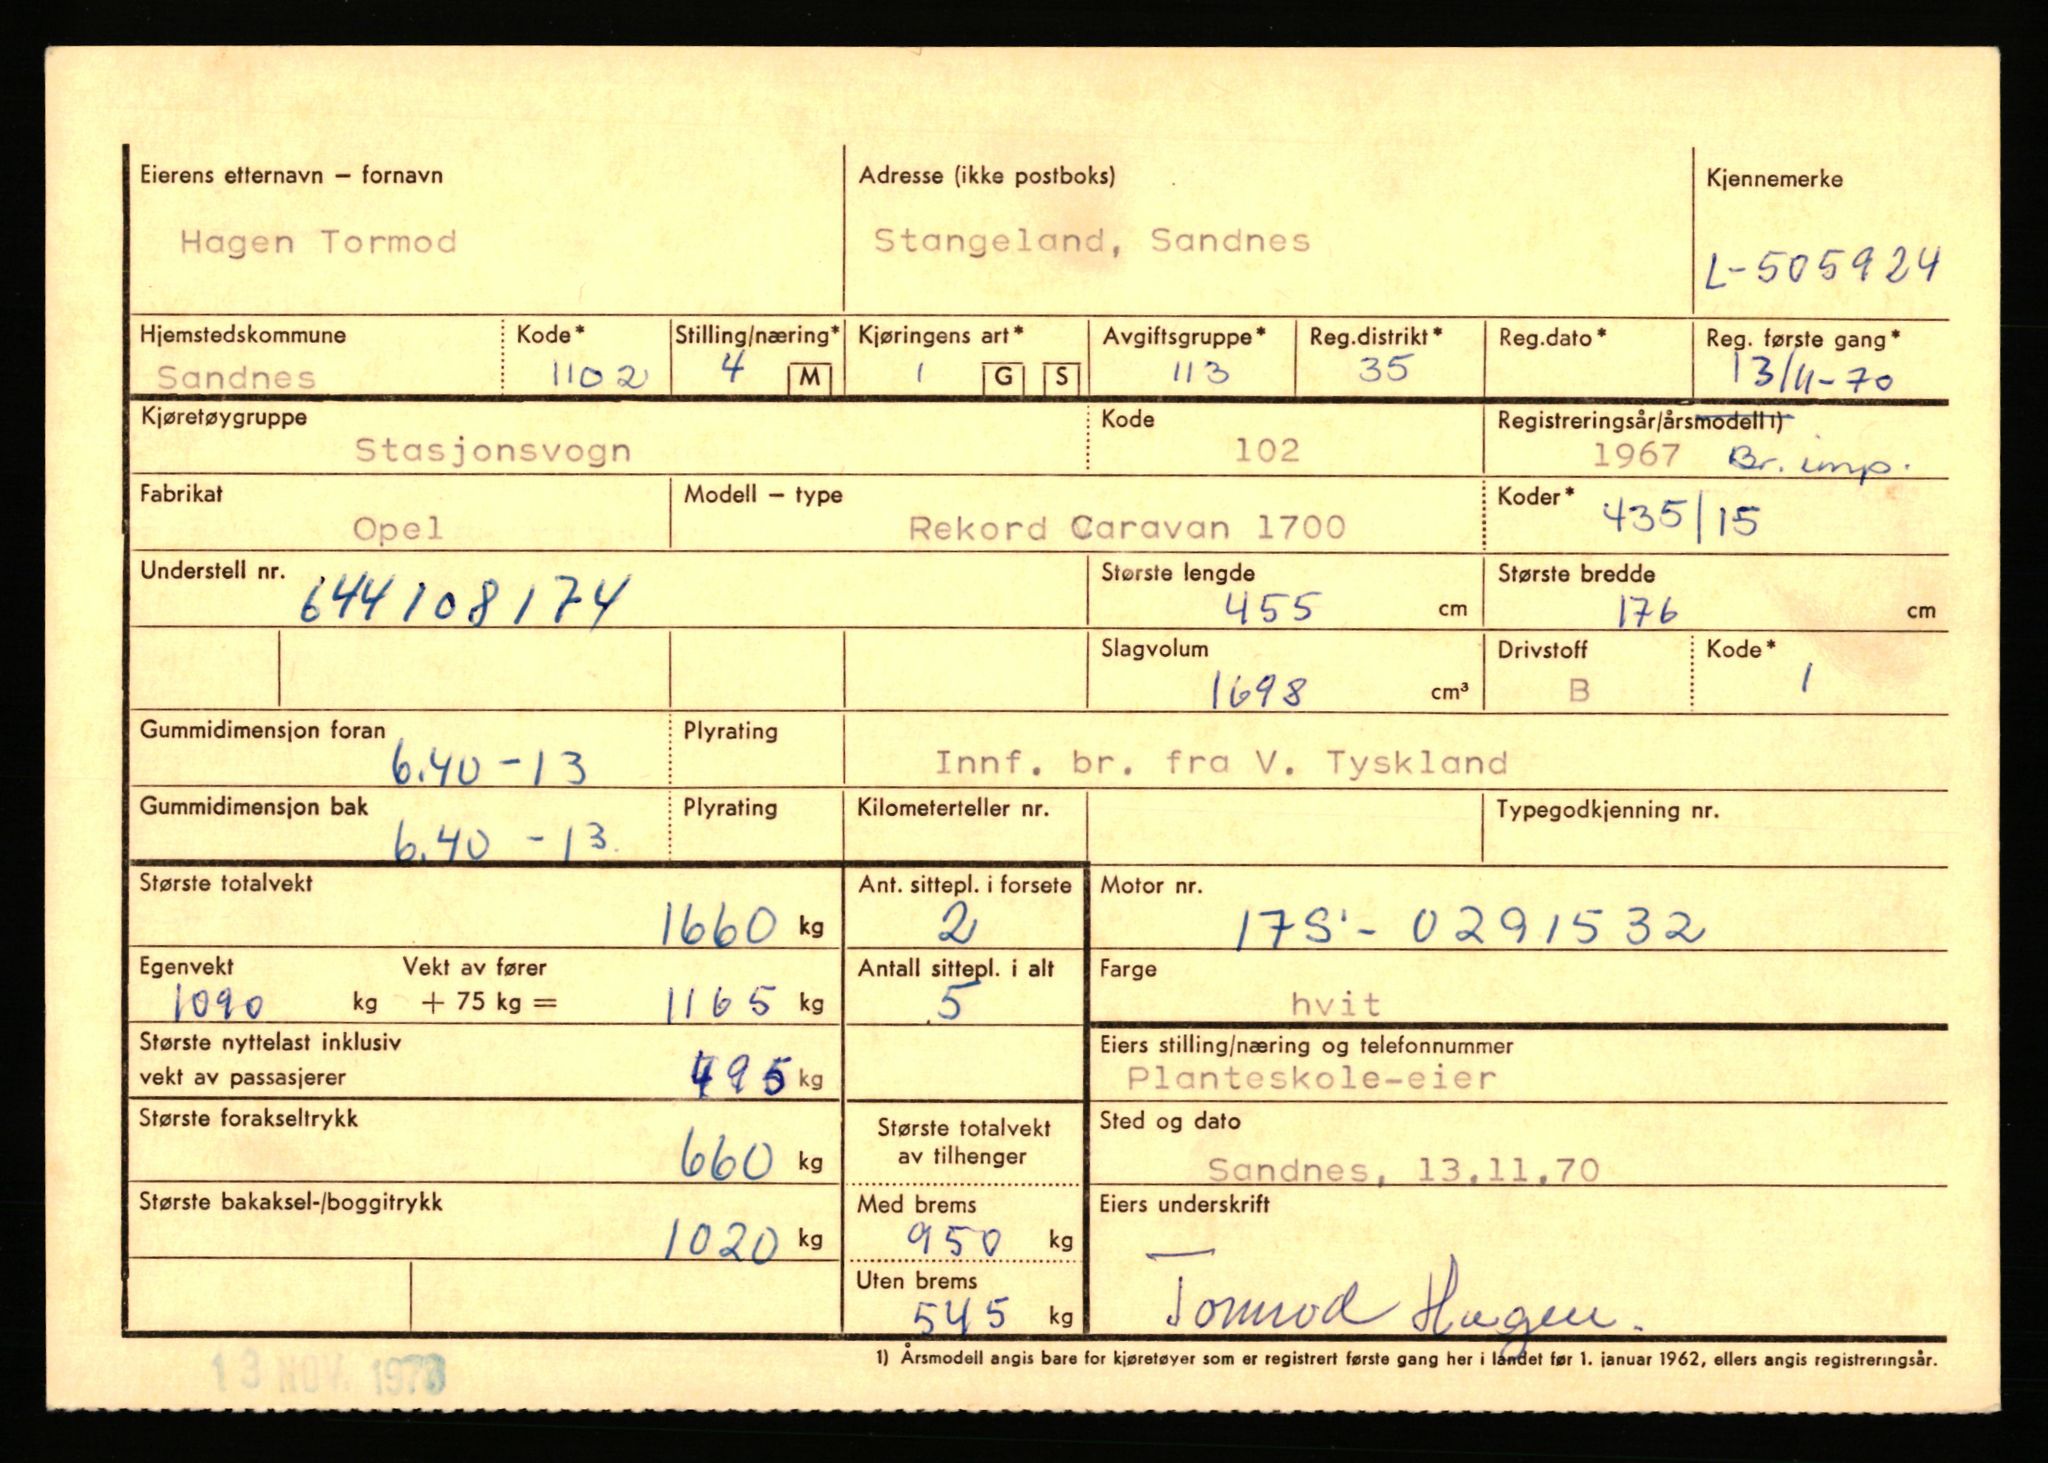 Eierens etternavn – fornavn
Adresse (ikke postboks)
Kjennemerke
Hagen Tormod
Stangeland, Sandnes
L-505924
Hjemstedskommune
Kode*
Stilling/næring*
Kjøringens art*
Avgiftsgruppe*
Reg.distrikt*
Reg.dato*
Reg. første gang*
Sandnes
1102
4
M
1
G
S
113
35
13/11-70
Kjøretøygruppe
Kode
Registreringsår/årsmodell 1)
Stasjonsvogn
102
1967 Br. imp.
Fabrikat
Modell – type
Koder*
Opel
Rekord Caravan 1700
435/15
Understell nr.
Største lengde
Største bredde
644108174
455 cm
176 cm
Slagvolum
Drivstoff
Kode*
1698 cm³
B
1
Gummidimensjon foran
Plyrating
6.40-13
Innf. br. fra V. Tyskland
Gummidimensjon bak
Plyrating
Kilometerteller nr.
Typegodkjenning nr.
6.40 -13
Største totalvekt
Ant. sittepl. i forsete
Motor nr.
1660 kg
2
17S - 0291532
Egenvekt
Vekt av fører
Antall sittepl. i alt
Farge
1090 kg + 75 kg = 1165 kg
5
hvit
Største nyttelast inklusiv
vekt av passasjerer
495 kg
Eiers stilling/næring og telefonnummer
Planteskole-eier
Største forakseltrykk
660 kg
Største totalvekt
av tilhenger
Sted og dato
Sandnes, 13.11.70
Største bakaksel-/boggitrykk
1020 kg
Med brems
950 kg
Uten brems
545 kg
Eiers underskrift
Tormod Hagen.
1) Årsmodell angis bare for kjøretøyer som er registrert første gang her i landet før 1. januar 1962, ellers angis registreringsår.
13 NOV. 1970